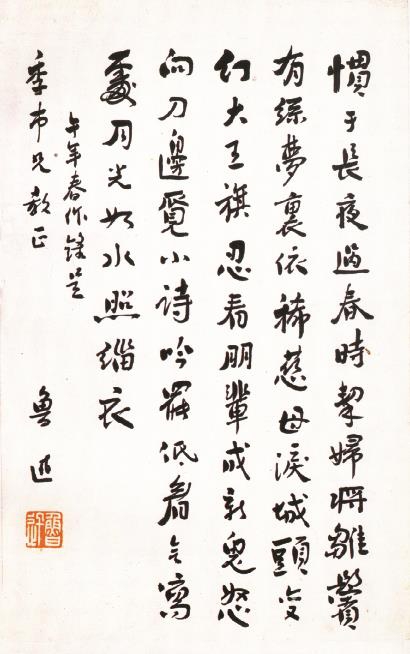 慣于長夜過春時挈婦將雛鬢
有絲夢裏依稀慈母淚城頭变
幻大王旗忍看朋輩成新鬼怒
向刀邊覓小詩吟罷低眉无寫
處月光如水照緇衣
午年春作錄呈
季市兄教正
魯迅
魯迅